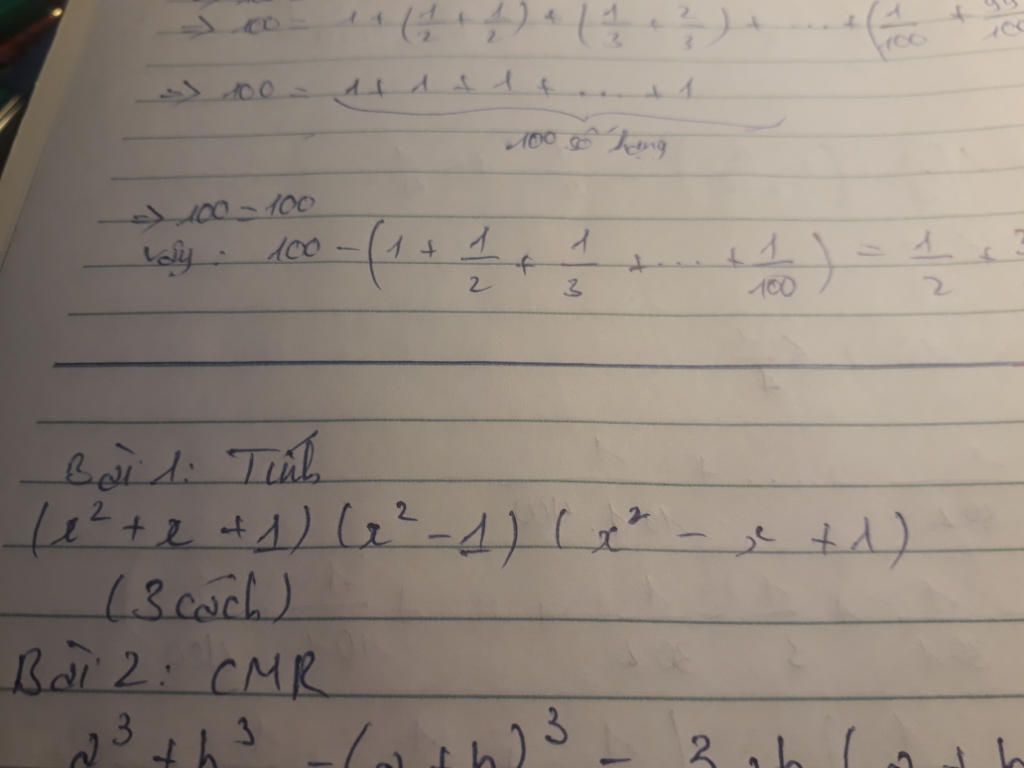 => 100 = 1 + (1/2 + 1/2) + (1/3 + 2/3) + ... + (1/100 + 99/100
=> 100 = 1 + 1 + 1 + ... + 1
100 số hạng
=> 100 = 100
Vậy: 100 - (1 + 1/2 + 1/3 + ... + 1/100) = 1/2 +
Bài 1: Tính
(x² + x + 1) (x² - 1) (x² - x + 1)
(3 cách)
Bài 2: CMR
a³ + b³ = (a + b)³ - 3ab(a + b